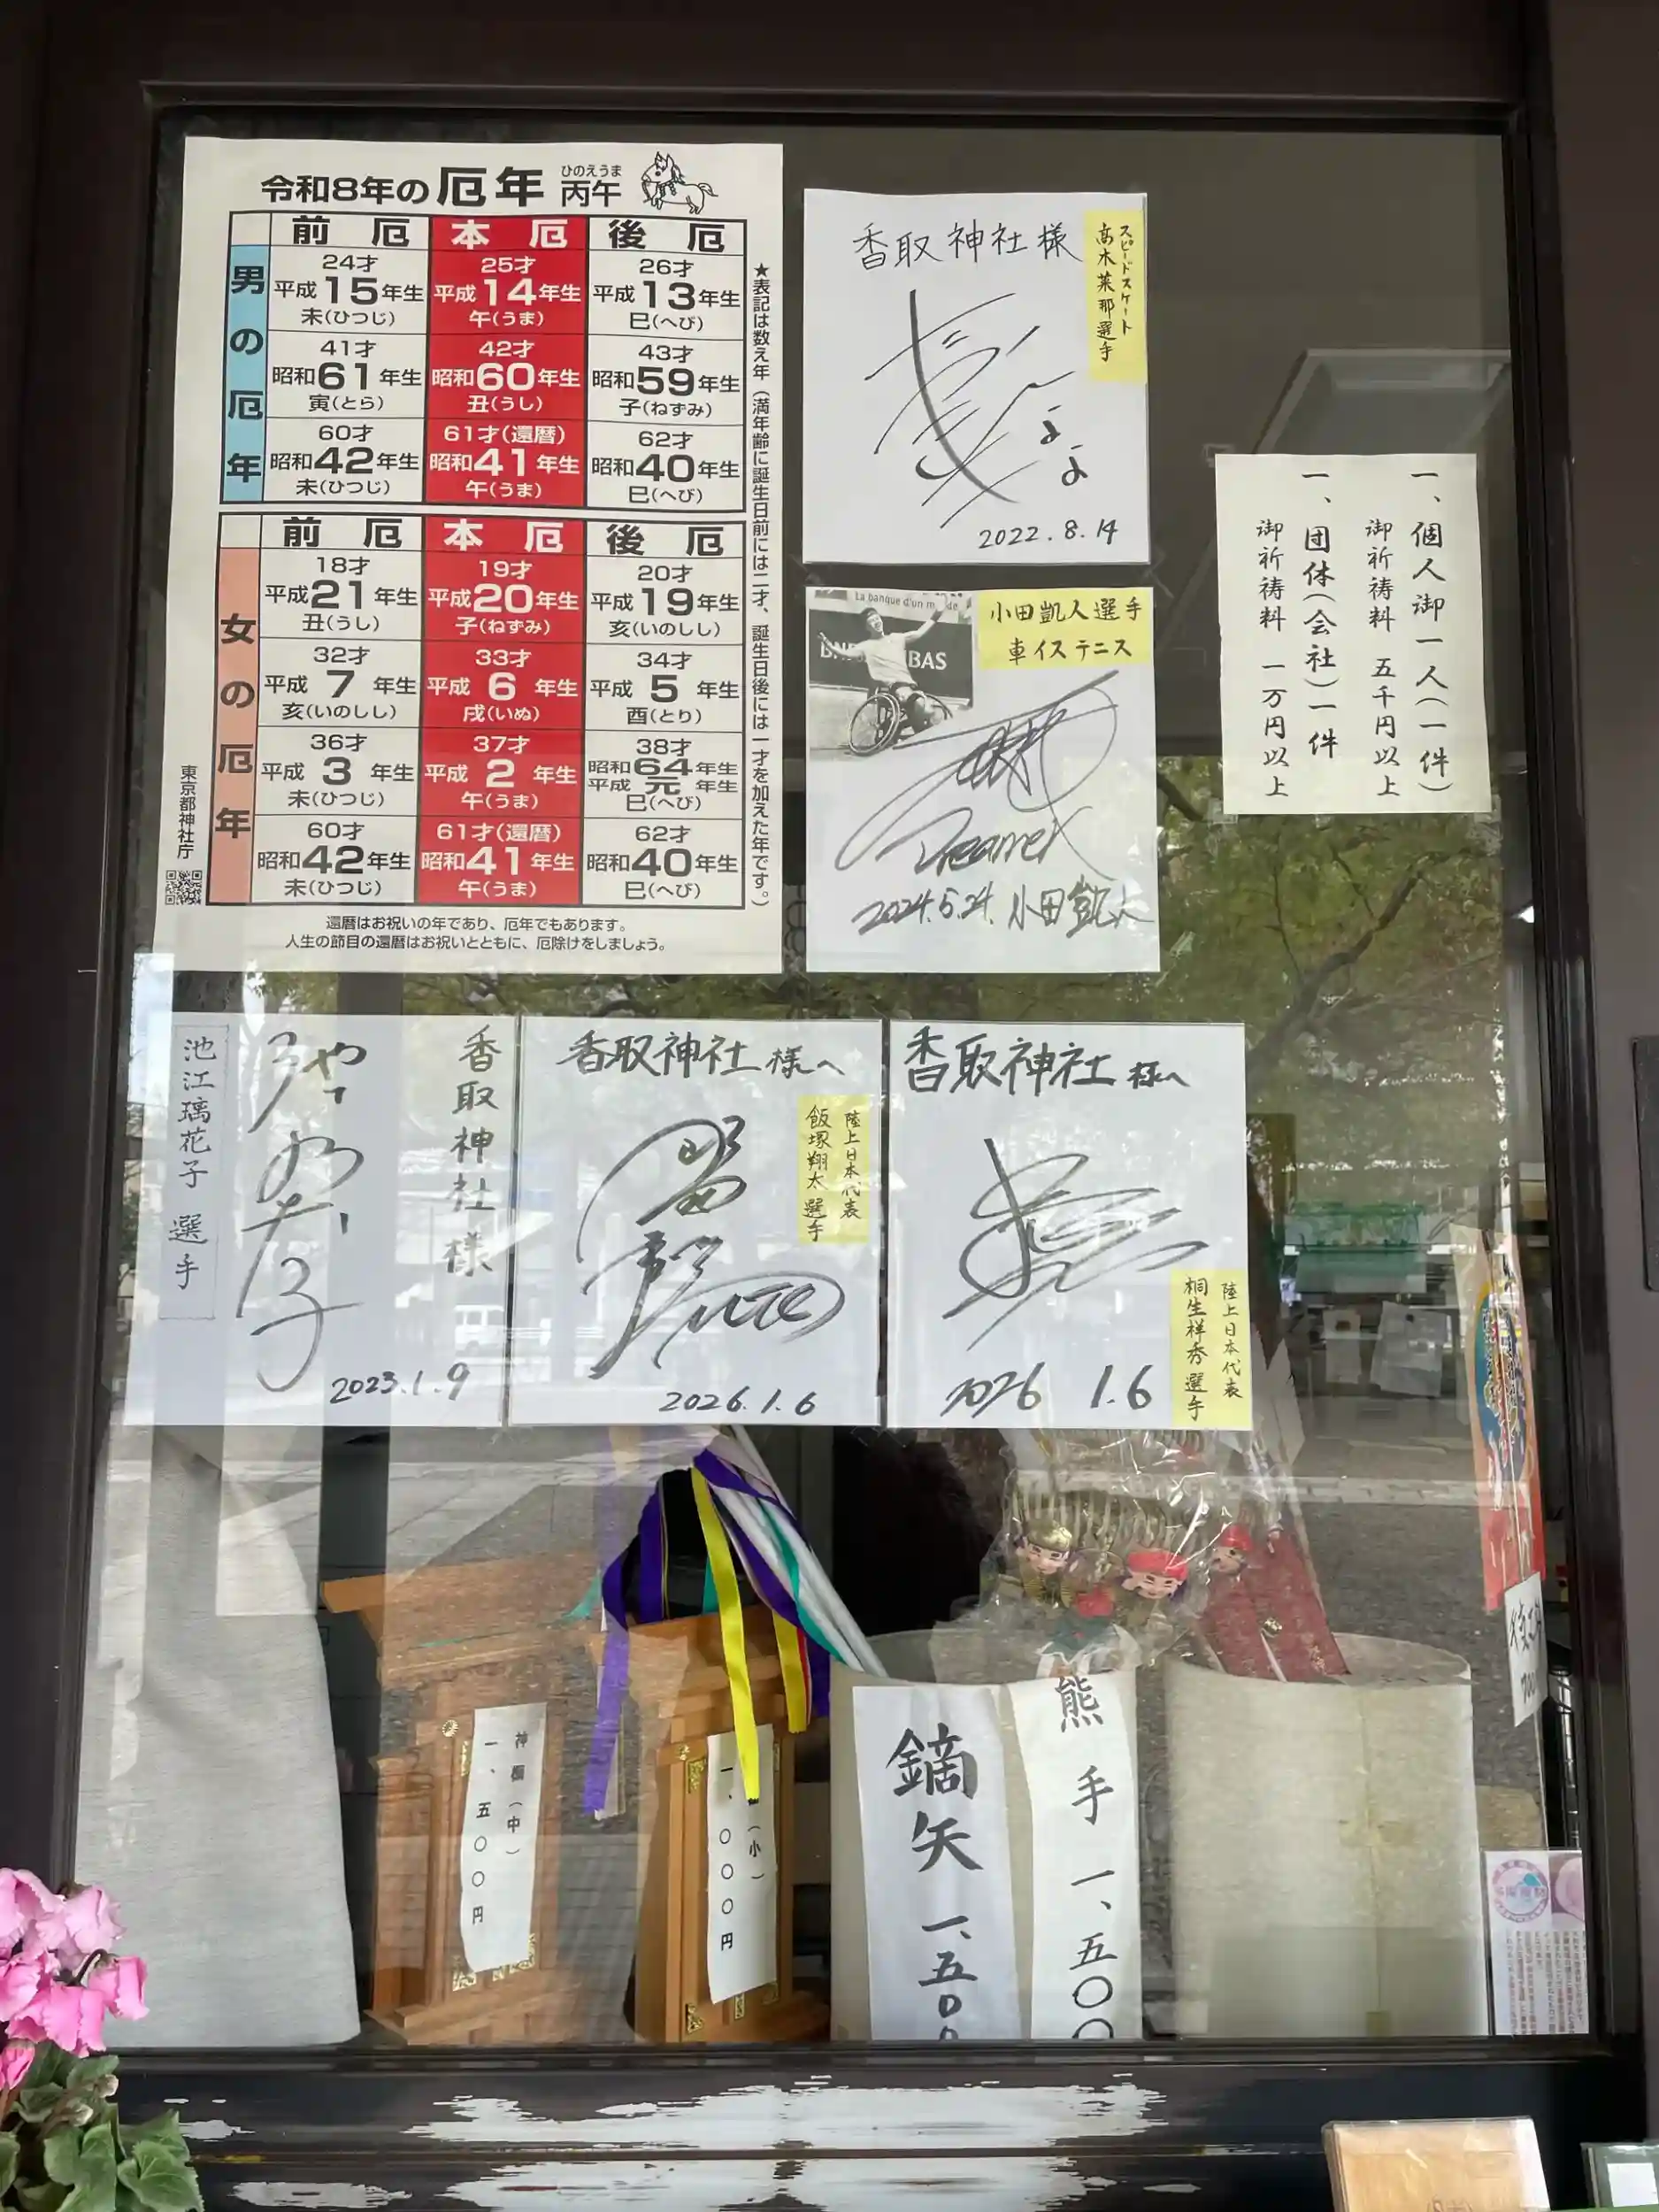 令和8年の厄年 丙午
ひのえうま
男の厄年
前厄 本厄 後厄
24才 25才 26才
平成15年生 平成14年生 平成13年生
未(ひつじ) 午(うま) 巳(へび)
41才 42才 43才
昭和61年生 昭和60年生 昭和59年生
寅(とら) 丑(うし) 子(ねずみ)
60才 61才(還暦) 62才
昭和42年生 昭和41年生 昭和40年生
未(ひつじ) 午(うま) 巳(へび)
女の厄年
前厄 本厄 後厄
18才 19才 20才
平成21年生 平成20年生 平成19年生
丑(うし) 子(ねずみ) 亥(いのしし)
32才 33才 34才
平成7年生 平成6年生 平成5年生
亥(いのしし) 戌(いぬ) 酉(とり)
36才 37才 38才
平成3年生 平成2年生 昭和64年生
平成元年生
未(ひつじ) 午(うま) 巳(へび)
60才 61才(還暦) 62才
昭和42年生 昭和41年生 昭和40年生
未(ひつじ) 午(うま) 巳(へび)
★表記は数え年(満年齢に誕生日前には二才、誕生日後には一才を加えた年です。)
東京都神社庁
還暦はお祝いの年であり、厄年でもあります。
人生の節目の還暦はお祝いとともに、厄除けをしましょう。
香取神社様
スピードスケート
高木菜那選手
2022.8.14
La banque d'un
BAS
小田凱人選手
車イステニス
2024.5.24. 小田凱人
一、個人御一人(一件)
御祈祷料 五千円以上
一、団体(会社)一件
御祈祷料 一万円以上
香取神社様
池江璃花子 選手
2023.1.9
香取神社様へ
陸上日本代表
飯塚翔太選手
2026.1.6
香取神社様へ
陸上日本代表
桐生祥秀選手
2026 1.6
神棚(中)
一、五〇〇円
(小)
一、〇〇〇円
鏑矢 一、五〇〇
熊手 一、五〇〇